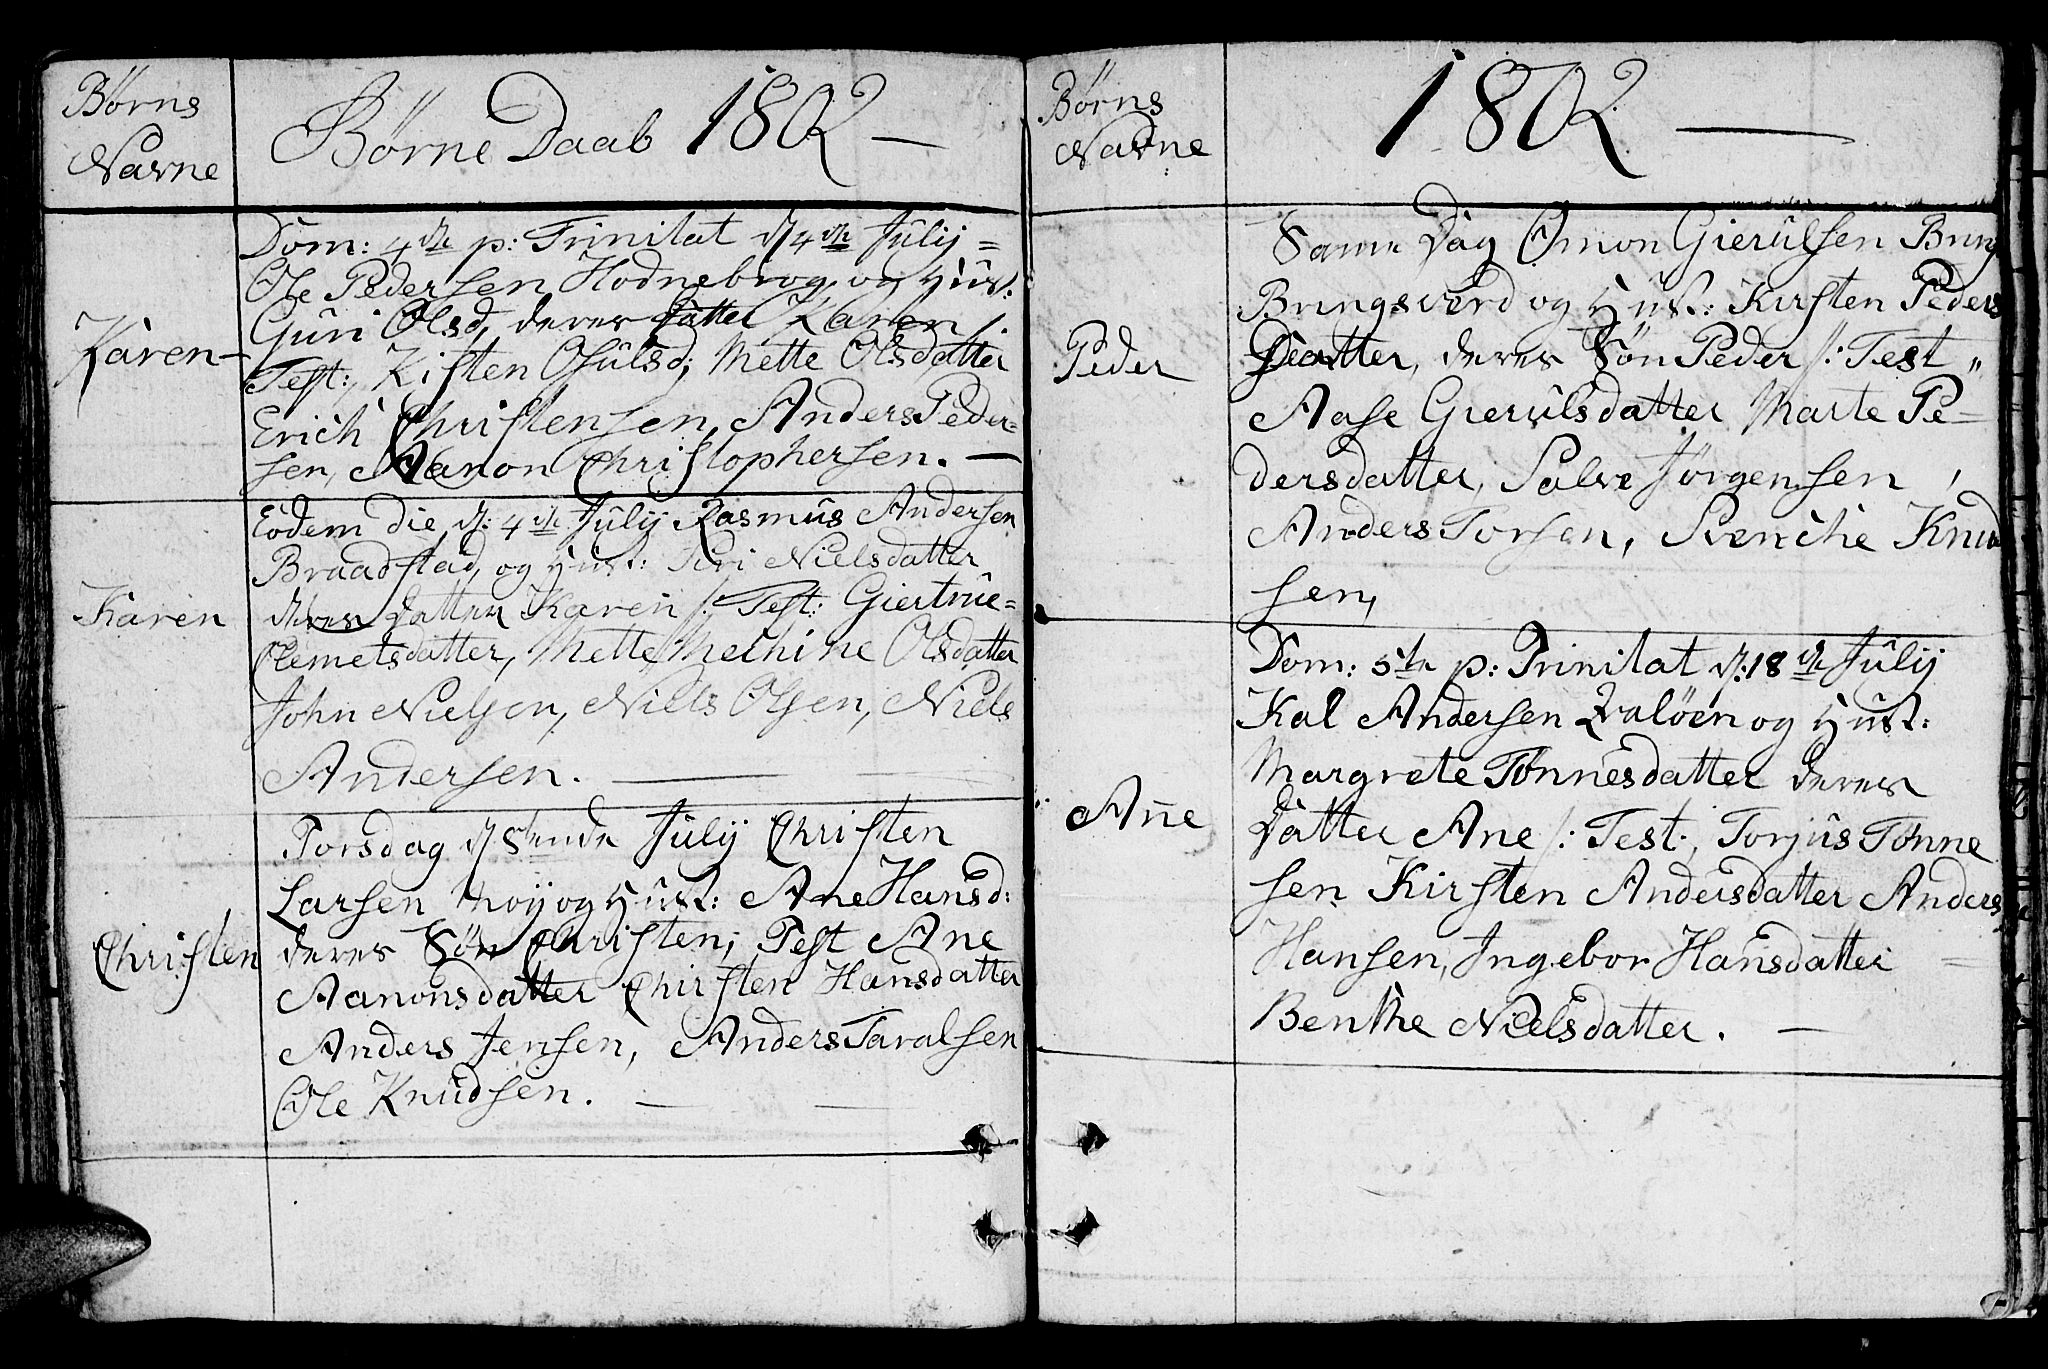 Børns
Navne
Børne Daab 1802 —
Dom: 4de p: Trinitat d 4de Julij =
Ole Pedersen Hodnebrog og Hust:
Guri Olsd, deres Datter Karen /:
Karen —
Test:, Kisten Osulsd; Mette Olsdatter
Erich Christensen, Anders Peder=
sen, Aanon Christophersen. —
Eodem die, d: 4de Julij Rasmus Andersen
Braadstad, og Hust: Siri Nielsdatter
Karen
deres Datter Karen /: Test: Giertrue=
Clemetsdatter, Mette Mechine Olsdatter
John Nielsen, Niels Olsen, Niels
Andersen. —
Torsdag d 8ende Julij Christen
Larsen Moy og Hust: Ane Hansd:
Christen
deres Søn Christen; Test Ane
Aanonsdatter Chirsten Hansdatter
Anders Jensen, Anders Taralsen
Ole Knudsen. —
Børns
Navne
1802 —
Samme Dag Omon Gierulsen Bring
Bringsverd og Hust: Kirsten Peders
Peder
Datter, deres Søn Peder /: Test „
Aase Gierulsdatter Marte Pe-
dersdatter, Salve Jørgensen,
Anders Torsen, Svenche Knud
sen,
Dom: 5te p: Trinitat d: 18de Julij
Kal Andersen Qvaløen og Hust:
Margrete Tønnesdatter deres
Ane
Datter Ane /: Test:, Torjus Tønne
sen Kirsten Andersdatter Anders
Hansen, Ingebor Hansdatter =
Benthe Nielsdatter. —